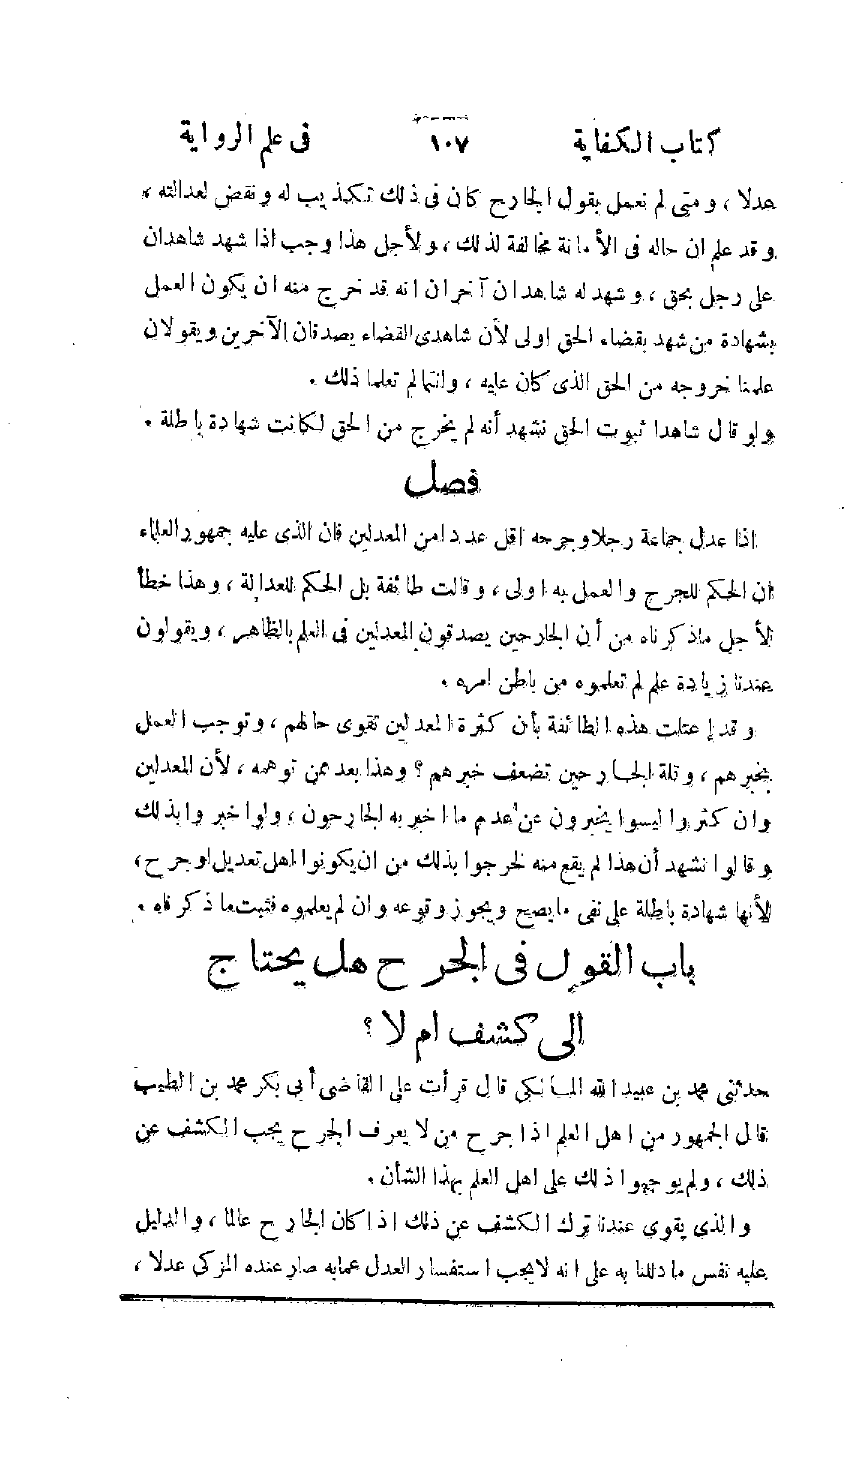 كتاب الكفاية ١٠٧ فى علم الرواية
عدلا ، ومتى لم نعمل بقول الجارح كان فى ذلك تكذيب له ونقض لعدالته ،
وقد علم ان حاله فى الأمانة مخالفة لذلك ، ولأجل هذا وجب اذا شهد شاهدان
على رجل بحق ، وشهد له شاهدان آخران انه قد خرج منه ان يكون العمل
بشهادة من شهد بقضاء الحق اولى لأن شاهدى القضاء يصدقان الآخرين ويقولان
علمنا خروجه من الحق الذى كان عليه ، وانتما لم تعلما ذلك .
ولو قال شاهدا ثبوت الحق نشهد أنه لم يخرج من الحق لكانت شهادة باطلة .
فصل
اذا عدل جماعة رجلا وجرحه اقل عددا من المعدلين فان الذى عليه جمهور العلماء
ان الحكم للجرح والعمل به اولى ، وقالت طائفة بل الحكم للعدالة ، وهذا خطأ
لأجل ماذكرناه من أن الجارحين يصدقون المعدلين فى العلم بالظاهر ، ويقولون
عندنا زيادة علم لم تعلموه من باطن امره .
وقد إعتلت هذه الطائفة بأن كثرة المعدلين تقوى حالهم ، وتوجب العمل
بخبرهم ، وقلة الجارحين تضعف خبرهم ؟ وهذا بعد ممن توهمه ، لأن المعدلين
وان كثروا ليسوا يخبرون عن عدم ما اخبر به الجارحون ، ولو اخبروا بذلك
وقالوا نشهد أن هذا لم يقع منه لخرجوا بذلك من ان يكونوا اهل تعديل او جرح ،
لأنها شهادة باطلة على نفى مايصح ويجوز وقوعه وان لم يعلموه فثبت ما ذكرناه .
باب القول فى الجرح هل يحتاج
الى كشف ام لا ؟
حدثنى محمد بن عبيد الله المالكى قال قرأت على القاضى أبى بكر محمد بن الطيب
قال الجمهور من اهل العلم اذا جرح من لا يعرف الجرح يجب الكشف عن
ذلك ، ولم يوجبوا ذلك على اهل العلم بهذا الشأن .
والذى يقوى عندنا ترك الكشف عن ذلك اذا كان الجارح عالما ، والدليل
عليه نفس مادللنا به على انه لايجب استفسار العدل عمابه صار عنده المزكى عدلا ،